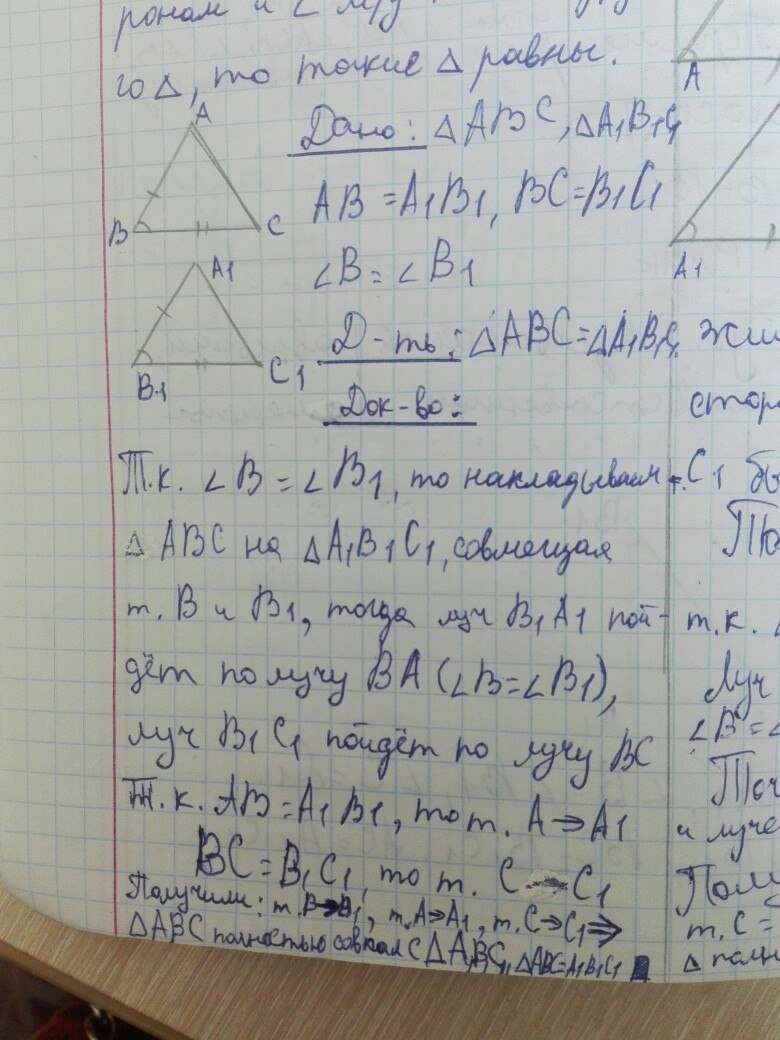 ронам и ∠
го Δ, то такие Δ равны.
A
Дано: Δ ABC, ΔA₁B₁C₁
AB = A₁B₁, BC = B₁C₁
B
C
∠B = ∠B₁
A1
Д-ть: ΔABC = ΔA₁B₁C₁
B1
C1
Док-во:
Т.к. ∠B = ∠B₁, то накладываем
Δ ABC на ΔA₁B₁C₁, совмещая
т. B и B₁, тогда луч B₁A₁ пой-
дёт по лучу BA (∠B=∠B₁),
луч B₁C₁ пойдёт по лучу BC
Т.к. AB = A₁B₁, то т. A ⇒ A₁
BC = B₁C₁, то т. C → C₁
Получили: т. B⇒B₁, т. A⇒A₁, т. C⇒C₁ ⇒
ΔABC полностью совпал с ΔA₁B₁C₁, ΔABC=A₁B₁C₁
A
A1
т. C₁
т.к.
Луч
∠B = ∠
и луче
т. C =